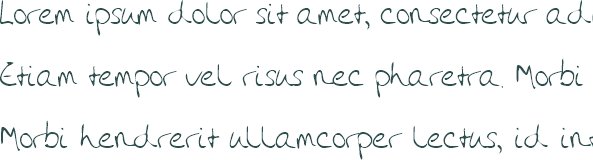 Lorem ipsum dolor sit amet, consectetur
Etiam tempor vel risus nec pharetra. Morbi
Morbi hendrerit ullamcorper lectus, id